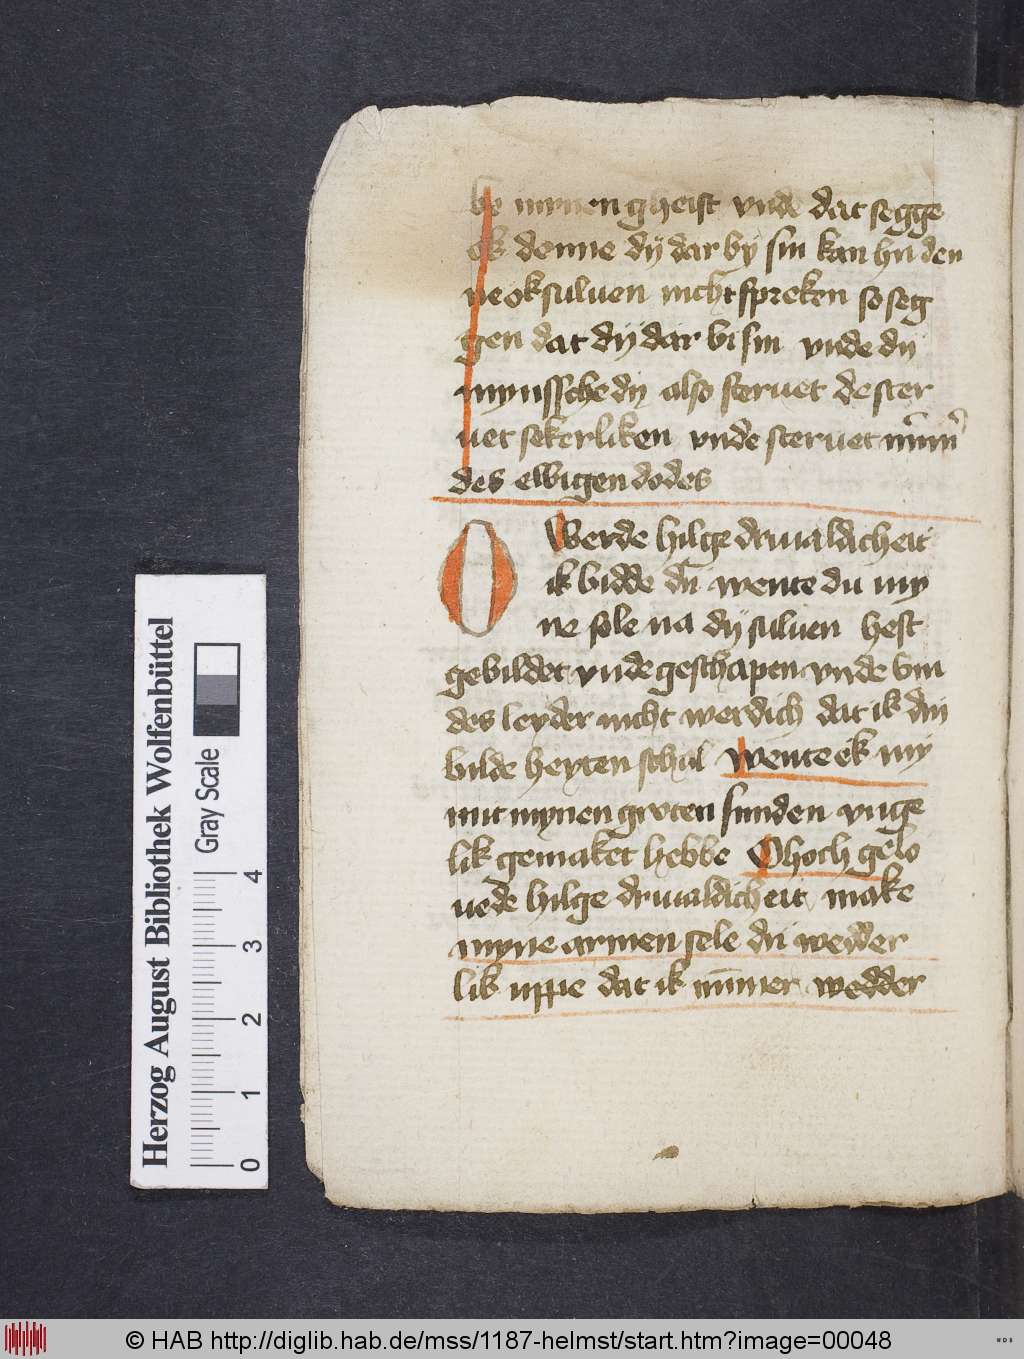 ve mynen gheist vnde dat segge
ek denne dy dar by sin kan hii den
ne ok suluen nicht spreken so seg
gen dat dy dar bi sin vnde dy
mynssche dy also steruet de ster
uet sekerliken vnde steruet
des ewigen dodes
O Werde hilge druualdicheit
ik bidde dy wente du my
ne sele na dy suluen hest
gebildet vnde geschapen vnde bin
des leyder nicht werdich dat ik dyn
bilde heyten schul wente ek my
mit mynen groten sunden vnge
lik gemaket hebbe O hoch gelo
uede hilge druualdicheit make
myne armen sele dy wedder
lik uppe dat ik nummer wedder
Herzog August Bibliothek Wolfenbüttel
Gray Scale
0 1 2 3 4
© HAB http://diglib.hab.de/mss/1187-helmst/start.htm?image=00048
WDB